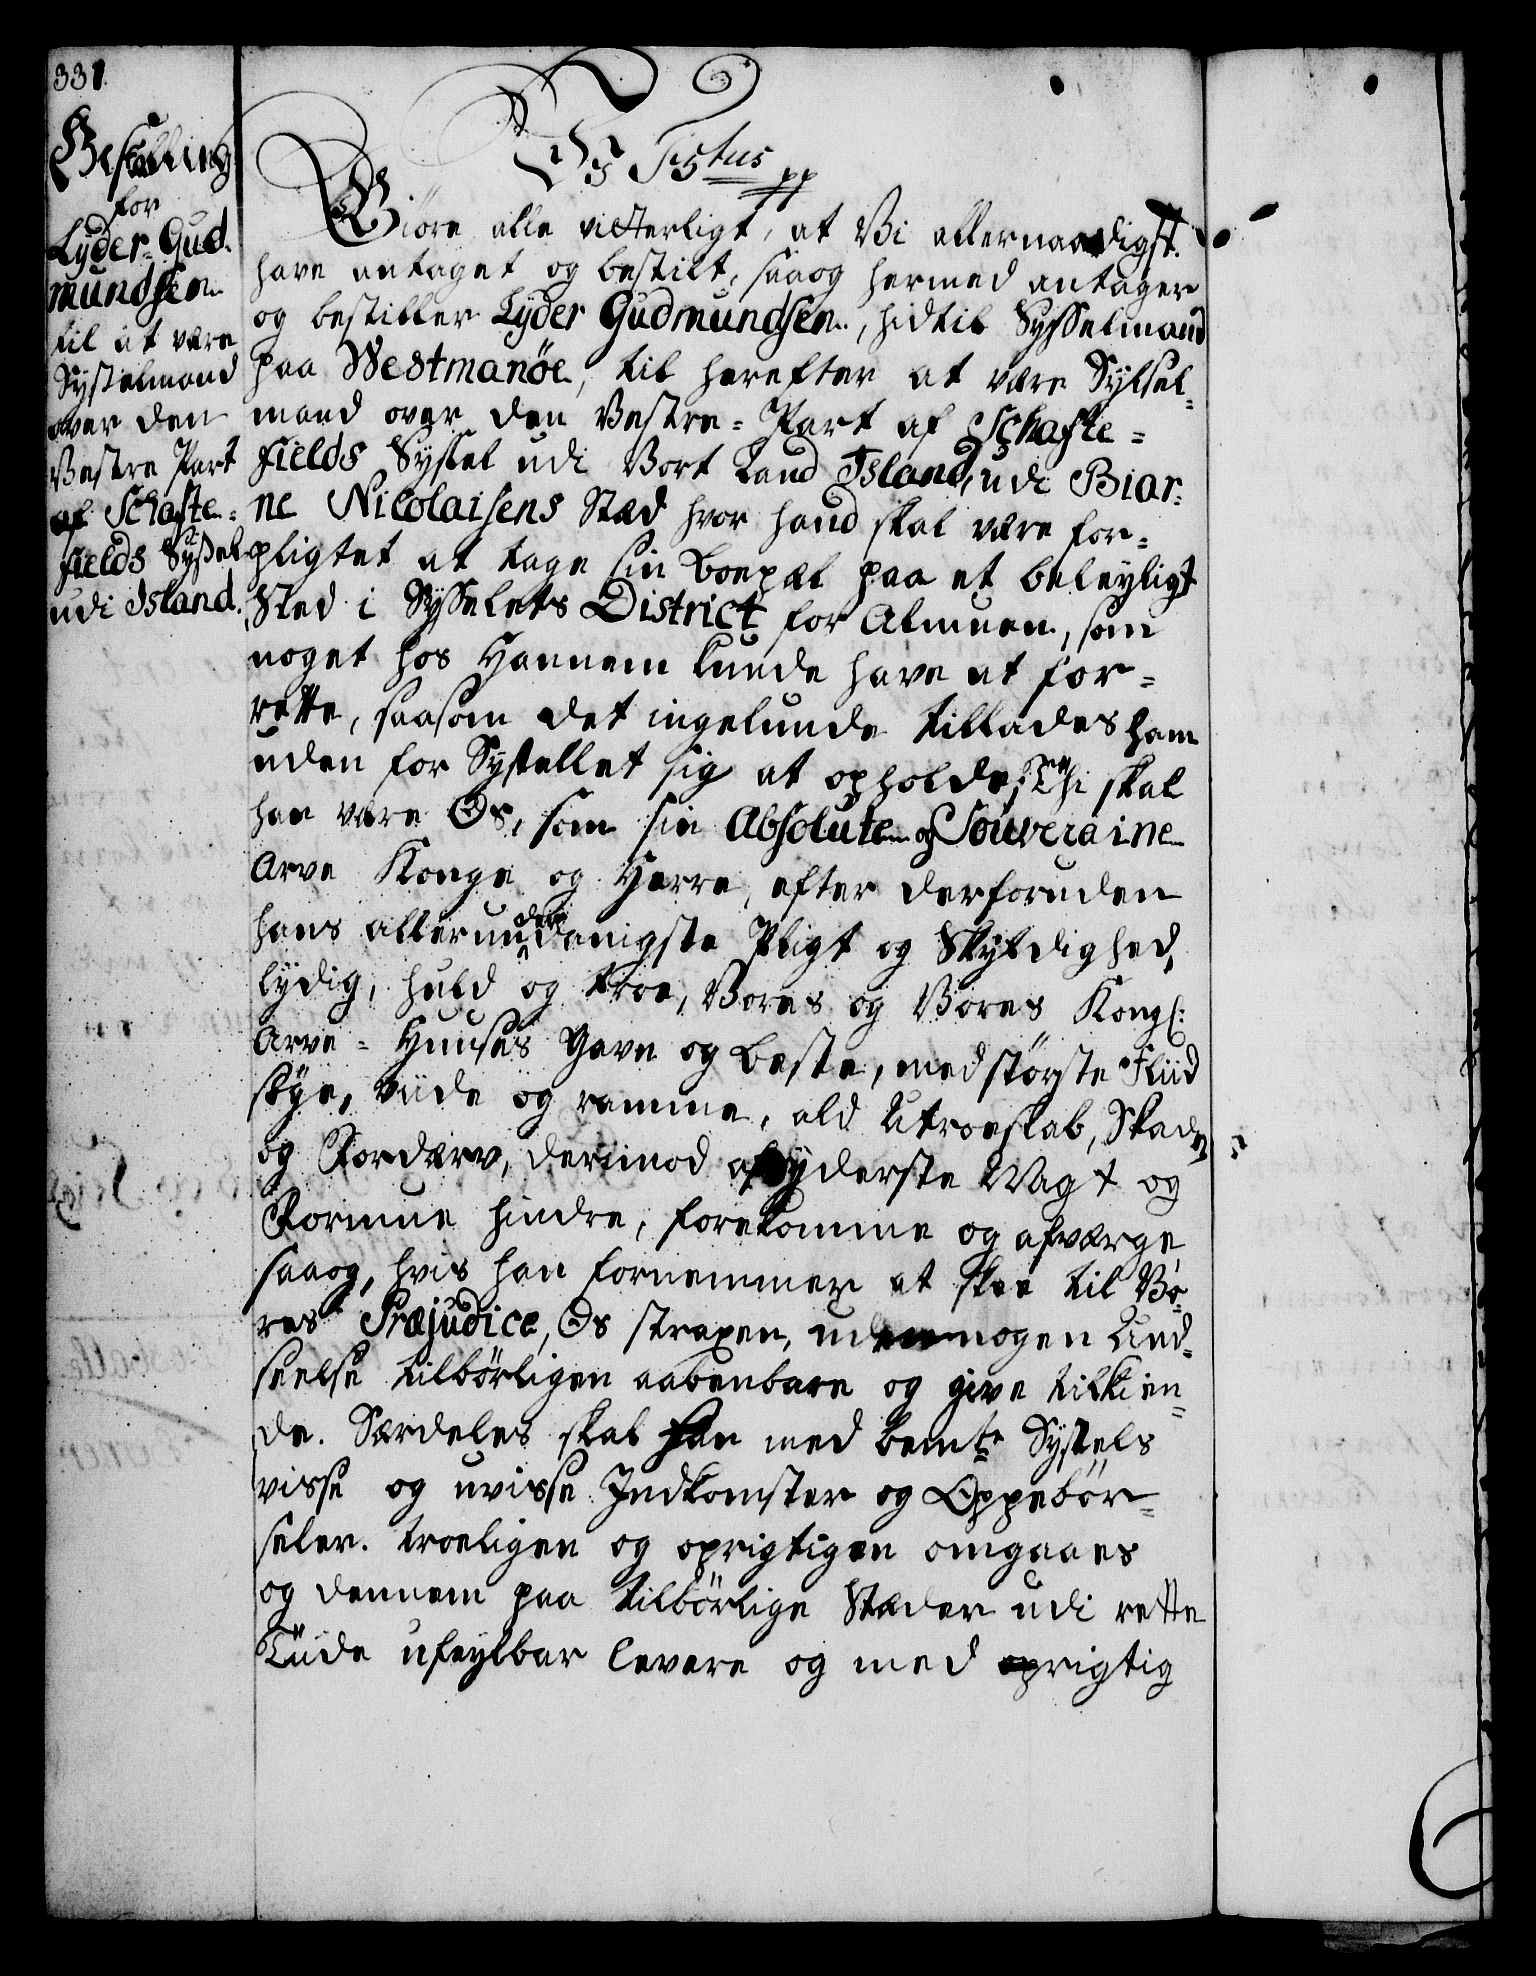 331.
Bestalling
for
Lyder Gud-
mundsen
til at være
Sysselmand
over den
Vestre Part
af Schafte-
fields Syssel
udi Island.
Titus pp
Giöre alle vitterligt, at Vi allernaadigst
have antaget og bestilt, saaog hermed antager
og bestiller Lyder Gudmundsen, hidtil Sysselmand
paa Westmanöe, til herefter at være Syssel-
mand over den Vestre-Part af Schafte-
fields Syssel udi Vort Land Island, udi Biar-
ne Nicolaisens Stæd hvor hand skal være for-
pligtet at tage sin Boepæl paa et beleyligt
Sted i Sysselets District for Almuen, som
noget hos Hannem kunde have at for-
rette, saasom det ingelunde tillades ham
uden for Syssellet sig at opholde; Thi skal
han være Os, som sin Absolute og Souveraine
Arve Konge og Herre, efter derforuden
hans allerunderdanigste Pligt og Skyldighed,
lydig, huld og troe, Vores og Vores Kongl:
Arve-Huuses Gavn og Beste, med störste Fliid
söge, viide og ramme, ald Utroeskab, Skade
og Fordærv, derimod af yderste Magt og
Formue hindre, forekomme og afværge
saaog, hvis han fornemmer at skee til Vo-
res Præjudice, Os straxen, uden nogen Und-
seelse tilbörligen aabenbare og give tilkien-
de. Særdeles skal han med bemte Syssels
visse og uvisse Indkomster og Oppebör-
seler. troeligen og oprigtigen omgaaes
og dennem paa tilbörlige Stæder udi rette
Tiide ufeylbar levere og med oprigtig